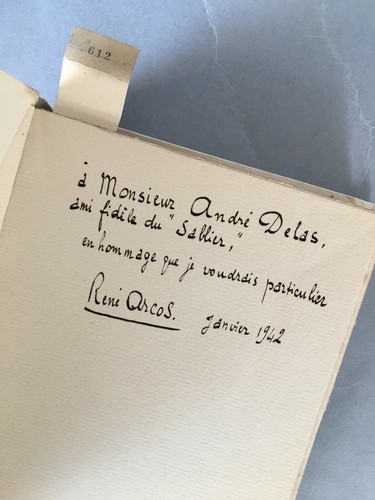 612
à Monsieur André Delas,
ami fidèle du "Sablier,"
en hommage que je voudrais particulier
René Arcos.
Janvier 1942